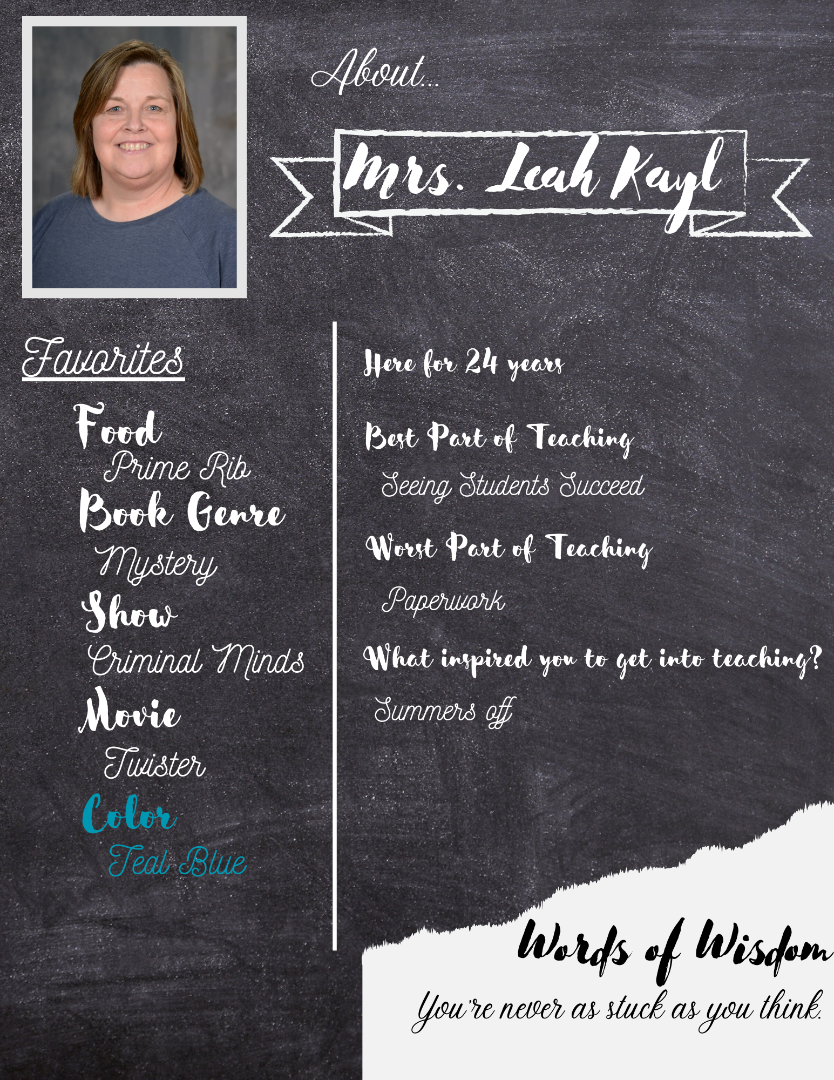 About...
Mrs. Leah Kayl
Favorites
Food
Prime Rib
Book Genre
Mystery
Show
Criminal Minds
Movie
Twister
Color
Teal Blue
Here for 24 years
Best Part of Teaching
Seeing Students Succeed
Worst Part of Teaching
Paperwork
What inspired you to get into teaching?
Summers off
Words of Wisdom
You're never as stuck as you think.